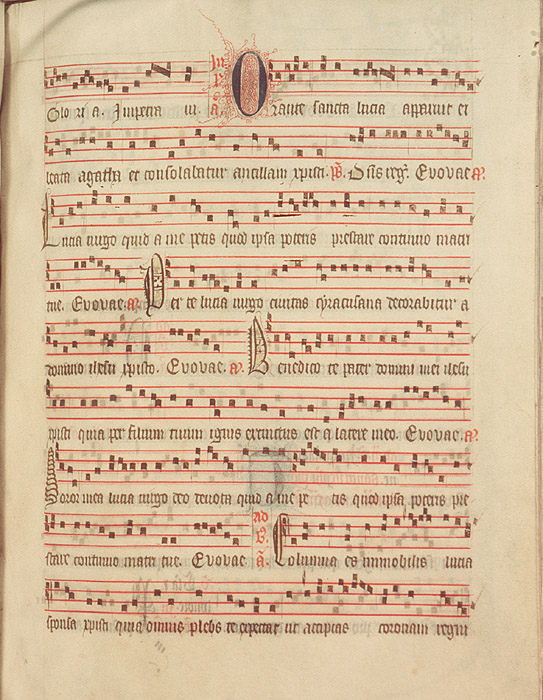 Glo ri a. Impetra ui. In l. a. Orante sancta lucia apparuit ei
beata agatha et consolabatur ancillam xpisti. ps. Dns reg. Evovae a.
Lucia uirgo quid a me petis quod ipsa poteris prestare continuo matri
tue. Evovae. a. Per te lucia uirgo ciuitas syracusana decorabitur a
domino ihesu xpisto. Evovae. a. Benedico te pater domini mei ihesu
xpisti quia per filium tuum ignis extinctus est a latere meo. Evovae. a.
Soror mea lucia uirgo deo deuota quid a me pe tis quod ipsa poteris pre
stare continuo matri tue. Evovae ad B. a. Columna es immobilis lucia
sponsa xpisti quia omnis plebs te expectat ut accipias coronam regni